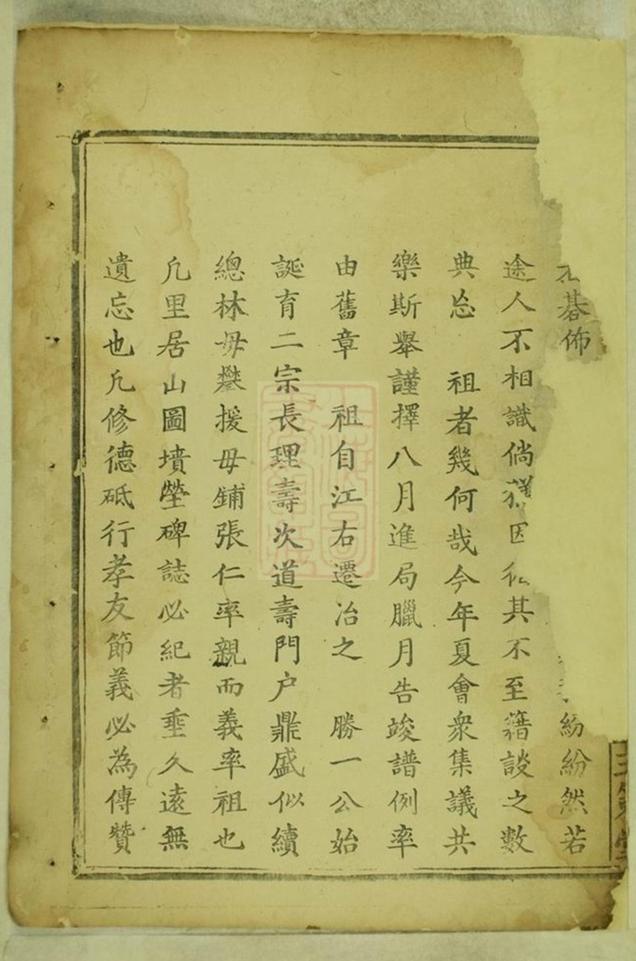 碁佈 紛紛然若
途人不相識倘 其不至籍談之數
典忘 祖者幾何哉今年夏會衆集議共
樂斯舉謹擇八月進局臘月告竣譜例率
由舊章 祖自江右遷冶之 勝一公始
誕育二宗長理壽次道壽門户鼎盛似續
緫林毋攀援毋鋪張仁率親而義率祖也
凢里居山圖墳塋碑誌必紀者垂久遠無
遺忘也凢修德砥行孝友節義必為傳贊